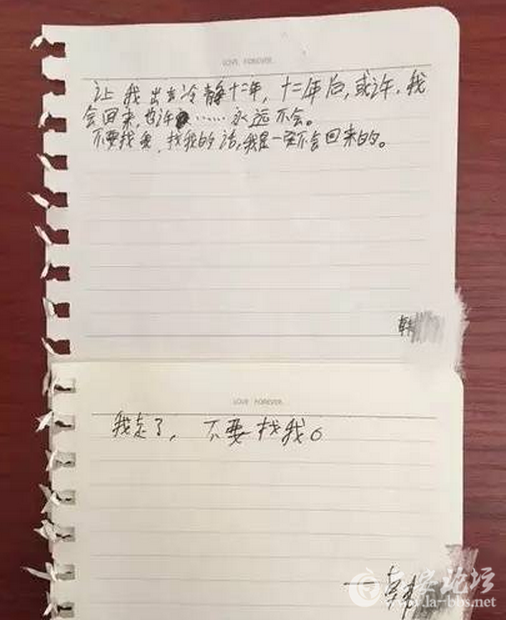 LOVE FOREVER
让我出去冷静十二年，十二年后，或许，我
会回来，也许……永远不会。
不要找我，找我的话，我是一定不会回来的。
韩
LOVE FOREVER
我走了，不要找我。
韩
六安论坛
www.la-bbs.net